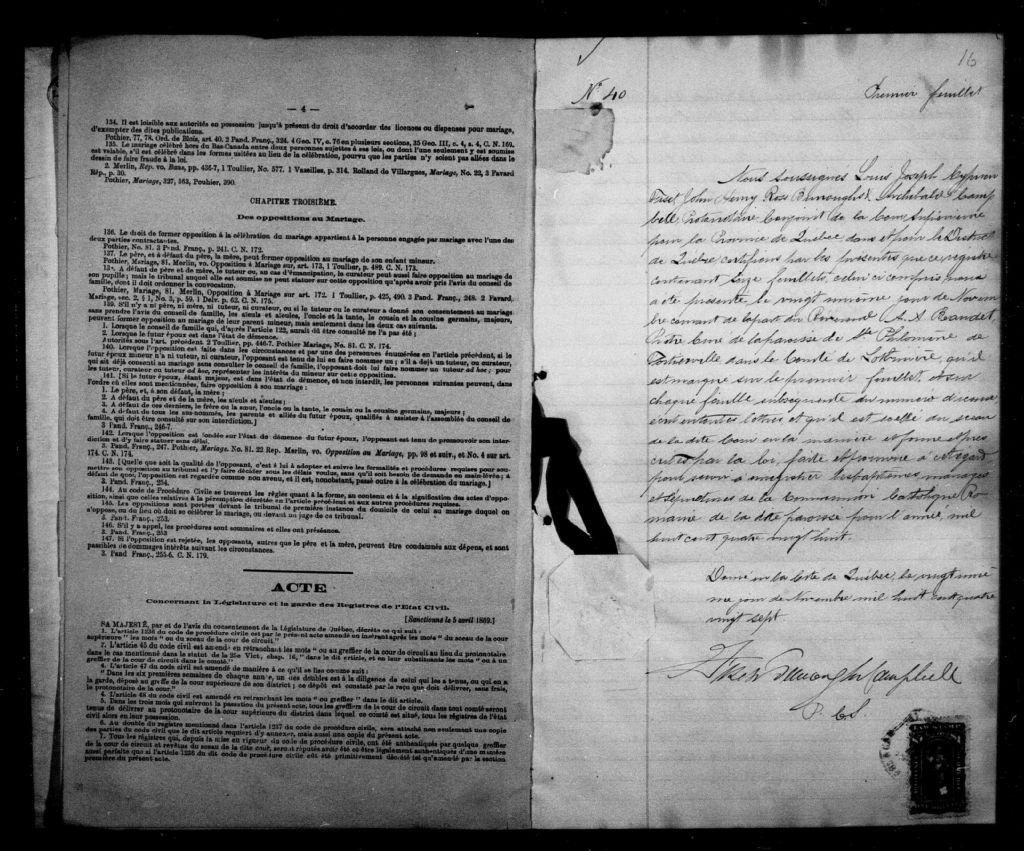 — 4 —
134. Il est loisible aux autorités en possession jusqu'à présent du droit d'accorder des licences ou dispenses pour mariage,
d'exempter des dites publications.
Pothier, 77, 78. Ord. de Blois, art 40. 2 Pand. Franç., 324. 4 Geo. IV, c. 76 en plusieurs sections, 35 Geo. III, c. 4, s. 4, C. N. 169.
135. Le mariage célébré hors du Bas-Canada entre deux personnes sujettes à ses lois, ou dont l'une seulement y est soumise
est valable, s'il est célébré dans les formes usitées au lieu de la célébration, pourvu que les parties n'y soient pas allées dans le
dessin de faire fraude à la loi.
2. Merlin, Rep. vo. Bans, pp. 436-7, 1 Toullier, No. 577. 1 Vazeilles, p. 314. Rolland de Villargues, Mariage, No. 22, 3 Favard
Rép., p. 30.
Pothier, Mariage, 327, 363, Pouhier, 390.
CHAPITRE TROISIÈME.
Des oppositions au Mariage.
136. Le droit de former opposition à la célébration du mariage appartient à la personne engagée par mariage avec l'une des
deux parties contractantes.
Pothier, No. 81. 3 Pand. Franç., p. 241. C. N. 172.
137. Le père, et à défaut du père, la mère, peut former opposition au mariage de son enfant mineur.
Pothier, Mariage, 81. Merlin, vo. Opposition à Mariage sur, art. 173, 1 Toullier, p. 489. C. N. 173.
138. A défaut de père et de mère, le tuteur ou, au cas d'émancipation, le curateur peut aussi faire opposition au mariage de
son pupille; mais le tribunal auquel elle est soumise ne peut statuer sur cette opposition qu'après avoir pris l'avis du conseil de
famille, dont il doit ordonner la convocation.
Pothier, Mariage, 81. Merlin, Opposition à Mariage sur art. 172. 1 Toullier, p. 425, 490. 3 Pand. Franç., 248. 2 Favard,
Mariage, sec. 2, § 1, No. 3, p. 59. 1 Delv. p. 62. C. N. 175.
139. S'il n'y a ni père, ni mère, ni tuteur, ni curateur, ou si le tuteur ou le curateur a donné son consentement au mariage
sans prendre l'avis du conseil de famille, les aïeuls et aïeules, l'oncle et la tante, le cousin et la cousine germains, majeurs,
peuvent former opposition au mariage de leur parent mineur, mais seulement dans les deux cas suivants.
1. Lorsque le conseil de famille qui, d'après l'article 122, aurait dû être consulté ne l'a pas été;
2. Lorsque le futur époux est dans l'état de démence.
Autorités sous l'art. précédent. 2 Toullier, pp. 446-7. Pothier Mariage, No. 81. C. N. 174.
140. Lorsque l'opposition est faite dans les circonstances et par une des personnes énumérées en l'article précédent, si le
futur époux mineur n'a ni tuteur, ni curateur, l'opposant est tenu de lui en faire nommer un; s'il a déjà un tuteur, ou curateur,
qui ait déjà consenti au mariage sans consulter le conseil de famille, l'opposant doit lui faire nommer un tuteur ad hoc; pour
les tuteur, curateur ou tuteur ad hoc, représenter les intérêts du mineur sur cette opposition.
141. [Si le futur époux, étant majeur, est dans l'état de démence, et non interdit, les personnes suivantes peuvent, dans
l'ordre où elles sont mentionnées, faire opposition à son mariage:
1. Le père, et, à son défaut, la mère;
2. A défaut du père et de la mère, les aïeuls et aïeules;
3. A défaut de ces derniers, le frère ou la sœur, l'oncle ou la tante, le cousin ou la cousine germains, majeurs;
4. A défaut de tous les sus-nommés, les parents et alliés du futur époux, qualifiés à assister à l'assemblée du conseil de
famille, qui doit être consulté sur son interdiction.]
3 Pand. Franç., 246-7.
142. Lorsque l'opposition est fondée sur l'état de démence du futur époux, l'opposant est tenu de promouvoir son inter-
diction et d'y faire statuer sans délai.
3. Pand. Franç., 247. Pothier, Mariage. No. 81. 22 Rep. Merlin, vo. Opposition au Mariage, pp 98 et suiv., et No. 4 sur art.
174. C. N. 174.
143. [Quelle que soit la qualité de l'opposant, c'est à lui à adopter et suivre les formalités et procédures requises pour sou-
mettre son opposition au tribunal et l'y faire décider sous les délais voulus, sans qu'il soit besoin de demande en main-levée; à
défaut de quoi, l'opposition est regardée comme non avenu, et il est, nonobstant, passé outre à la célébration du mariage.]
3. Pand. Franç., 254.
144. Au code de Procédure Civile se trouvent les règles quant à la forme, au contenu et à la signification des actes d'oppo-
sition, ainsi que celles relatives à la péremption décrétée en l'article précédent et aux autres procédures requises.
145. Les oppositions sont portées devant le tribunal de première instance du domicile de celui au mariage duquel on
s'oppose, ou du lieu où doit se célébrer le mariage, ou devant un juge de ce tribunal.
3. Pand. Franç., 253.
146. S'il y a appel, les procédures sont sommaires et elles ont préséance.
3. Pand. Franç., 253
147. Si l'opposition est rejetée, les opposants, autres que le père et la mère, peuvent être condamnés aux dépens, et sont
passibles de dommages intérêts suivant les circonstances.
3. Pand Franç., 255-6. C. N. 179.
ACTE
Concernant la Législature et la garde des Registres de l'Etat Civil.
[Sanctionné le 5 avril 1869.]
SA MAJESTÉ, par et de l'avis du consentement de la Législature de Québec, décrète ce qui suit:
1. L'article 1236 du code de procédure civile est par le présent acte amendé en insérant après les mots "du sceau de la cour
supérieure" les mots "ou du sceau de la cour de circuit."
2. L'article 45 du code civil est amendé en retranchant les mots "ou au greffier de la cour de circuit au lieu du protonotaire
dans le cas mentionné dans le statut de la 25e Vict., chap. 16," dans le dit article, et en leur substituant les mots "ou à un
greffier de la cour de circuit dans le comté."
3. L'article 47 du code civil est amendé de manière à ce qu'il se lise comme suit:
"Dans les six premières semaines de chaque année, un des doubles est à la diligence de celui qui les a tenus, ou qui en a
la garde, déposé au greffe de la cour supérieure de son district; ce dépôt est constaté par le reçu que doit délivrer, sans frais,
le protonotaire de la cour."
4. L'article 48 du code civil est amendé en retranchant les mots "ou greffier" dans le dit article.
5. Dans les trois mois qui suivront la passation du présent acte, tous les greffiers de la cour de circuit dans tout comté seront
tenus de délivrer au protonotaire de la cour supérieure du district dans lequel ce comté est situé, tous les régistres de l'état
civil alors en leur possession.
6. Au double du registre mentionné dans l'article 1237 du code de procédure civile, sera attaché non seulement une copie
des parties du code civil que le dit article requiert d'y annexer, mais aussi une copie du présent acte.
7. Tous les régistres qui, depuis la mise en vigueur du code de procédure civile, ont été authentiqués par quelque greffier
de la cour de circuit et revêtus du sceau de la dite cour, seront réputés avoir été et être légalement authentiqués d'une manière
aussi parfaite que si l'article 1236 du dit code de procédure civile eût été primitivement décrété tel qu'amendé par la section
première du présent acte.
16
No 40
Premier feuillet
Nous soussignés Louis Joseph Cyprien
Fiset John Henry Ross Burroughs & Archibald Camp
bell Protonotaire Conjoint de la Cour Supérieure
pour la Province de Québec dans et pour le District
de Québec certifions par les présentes que ce registre
contenant seize feuillets, celui ci compris nous
a été présenté le vingt unième jour de Novem
bre courant de la part du Reverend A. A. Beaudet
Prêtre Curé de la paroisse de Ste Philomène de
Fortierville dans le Comté de Lotbinière, qu'il
est marqué sur le premier feuillet, et sur
chaque feuillet subséquent du numéro d'icelui
écrit en toutes lettres et qu'il est scellé du sceau
de la dite Cour en la manière et forme et pres
crites par la loi, faite et pourvue à cet égard
pour servir à enregistrer les baptêmes mariages
et sépultures de la Communion Catholique Ro
maine de la dite paroisse pour l'année mil
huit cent quatre vingt huit.
Donné en la Cité de Québec, le vingt uniè
me jour de Novembre mil huit cent quatre
vingt sept
Fiset Burroughs Campbell
P. C. S.